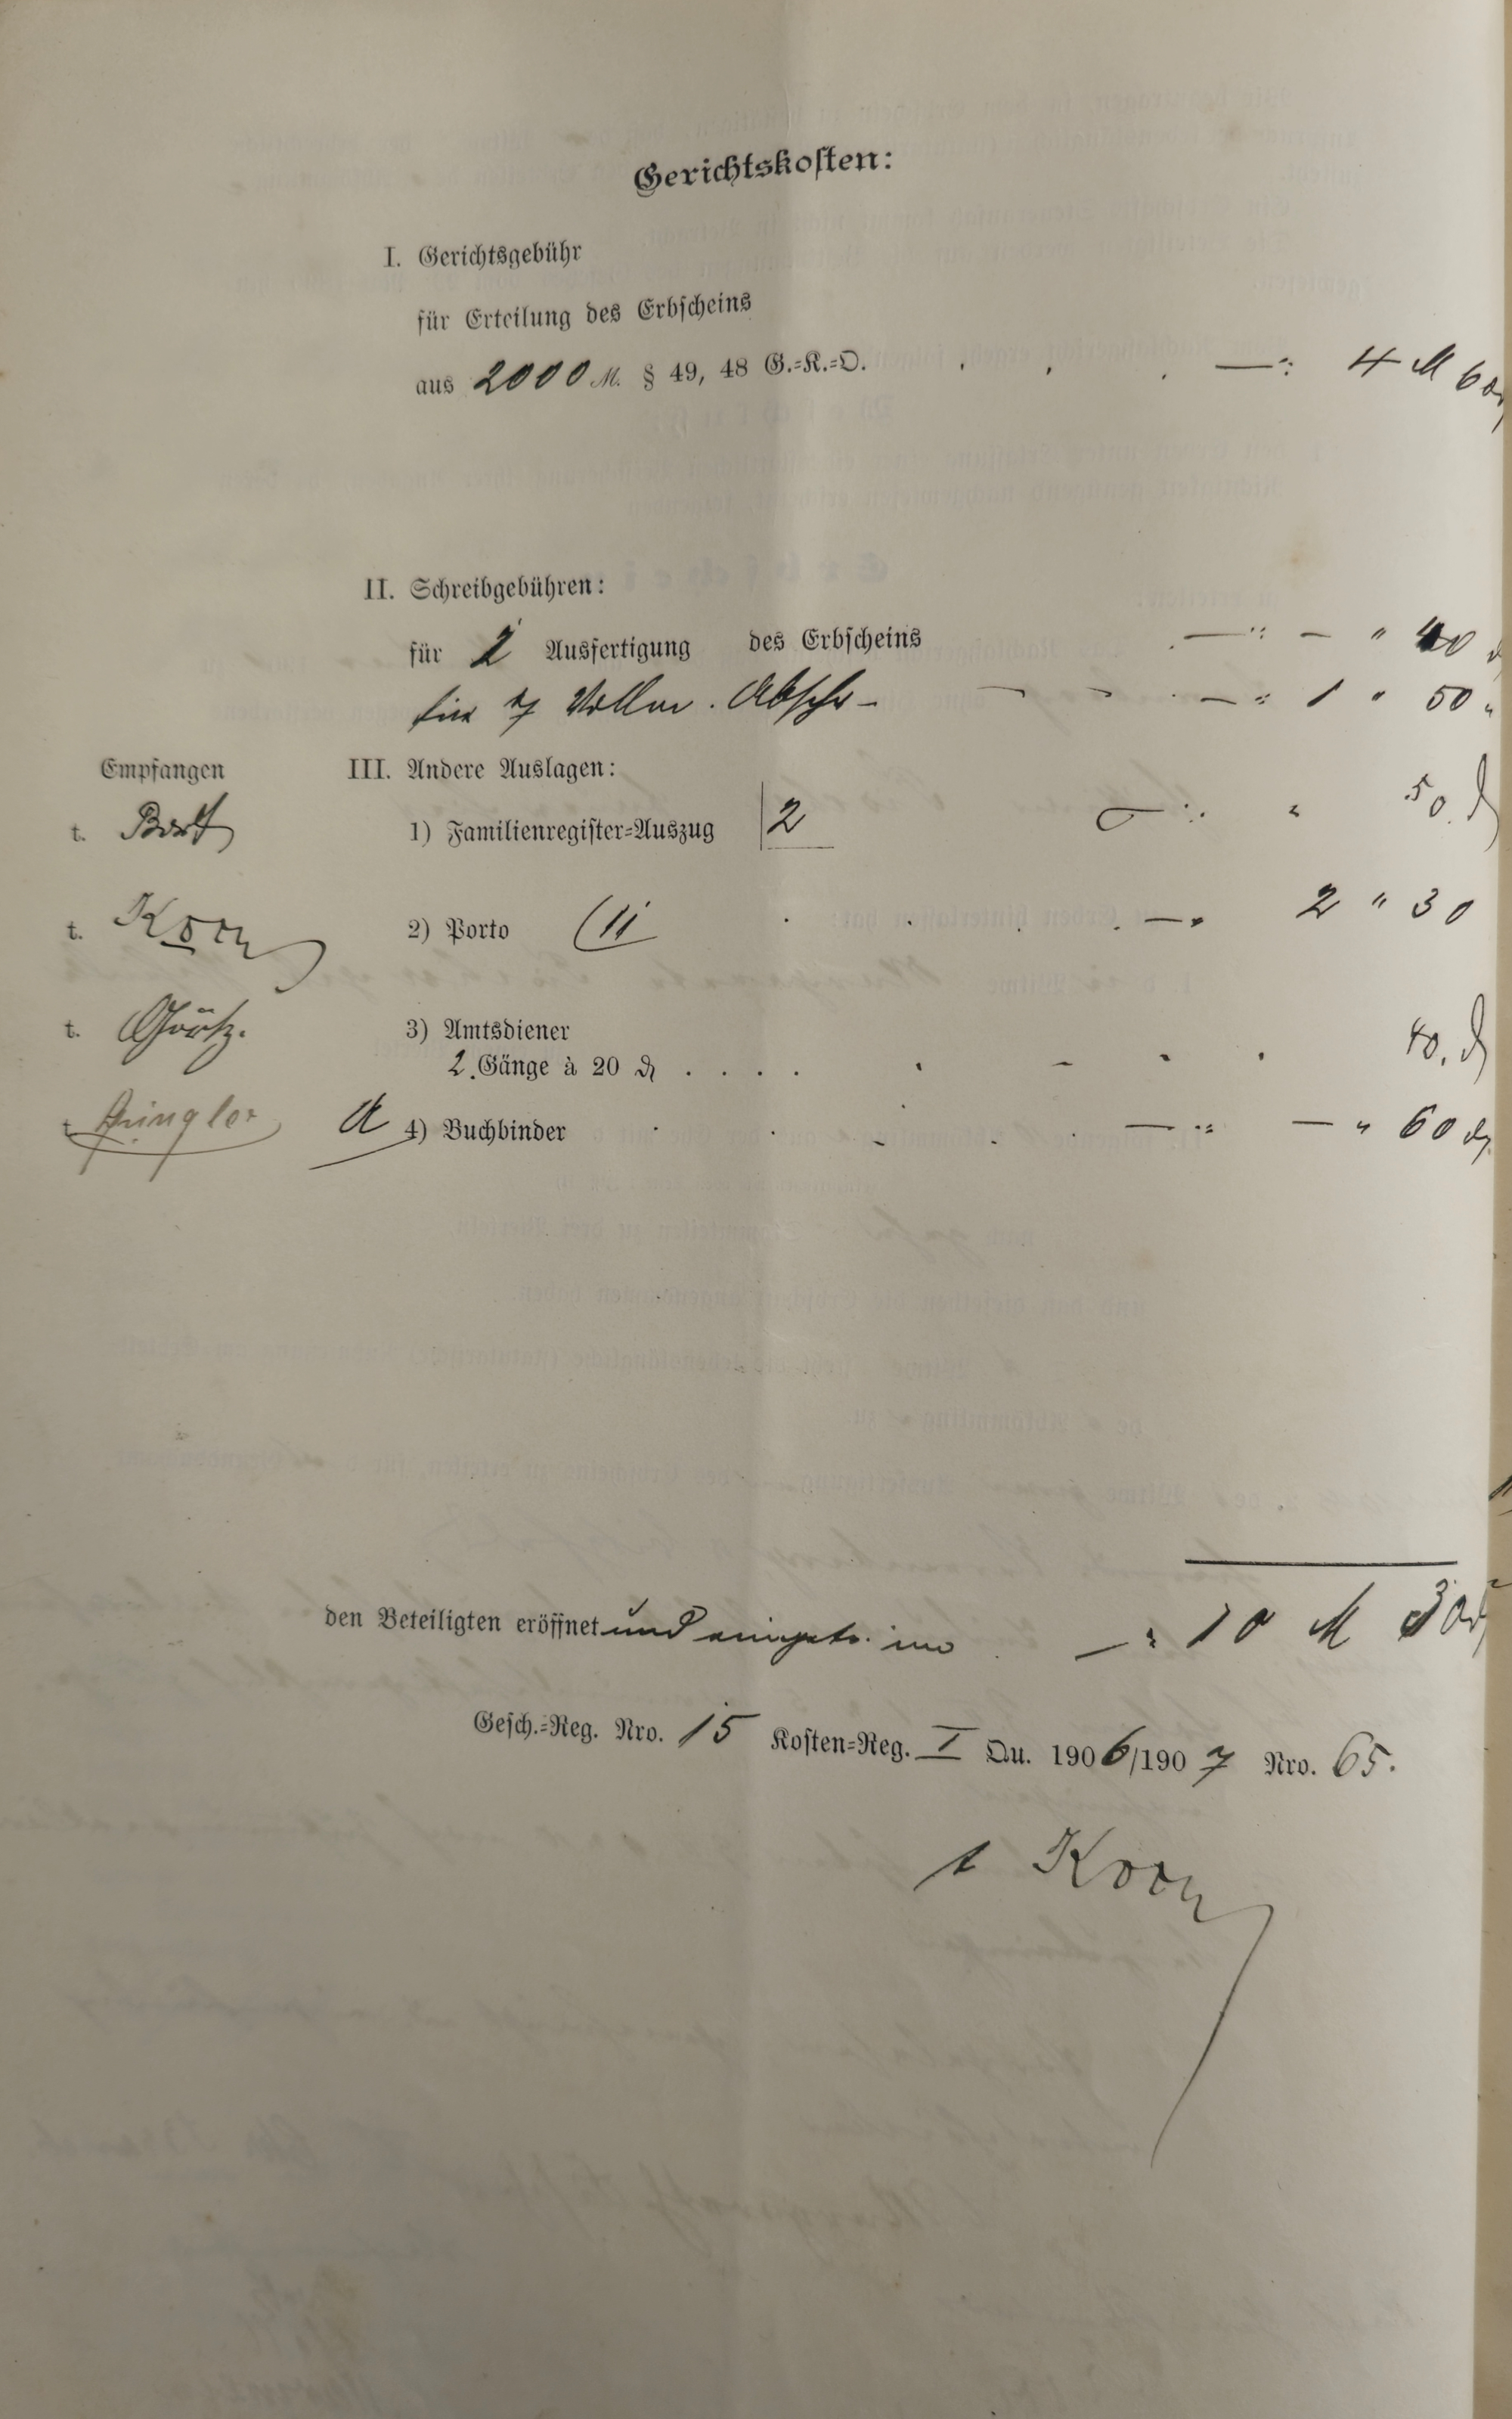 Gerichtskosten:
I. Gerichtsgebühr
für Erteilung des Erbscheins
aus 2000 M. § 49, 48 G.=K.=O. . . . —" 4 M 60 ₰
II. Schreibgebühren:
für 2 Ausfertigung des Erbscheins —" — " 40 ₰
für 7 Abschr — —" 1 " 50 "
Empfangen
III. Andere Auslagen:
t. 1) Familienregister=Auszug 2 " 50 ₰
t. Korn 2) Porto (11 . . . . —" 2 " 30
t. Görtz. 3) Amtsdiener
2 Gänge à 20 ₰ . . . . 40. ₰
t 4) Buchbinder —" — " 60 ₰
den Beteiligten eröffnet und —" 10 M 30 ₰
Gesch.=Reg. Nro. 15 Kosten=Reg. I Qu. 1906/1907 Nro. 65.
t Korn